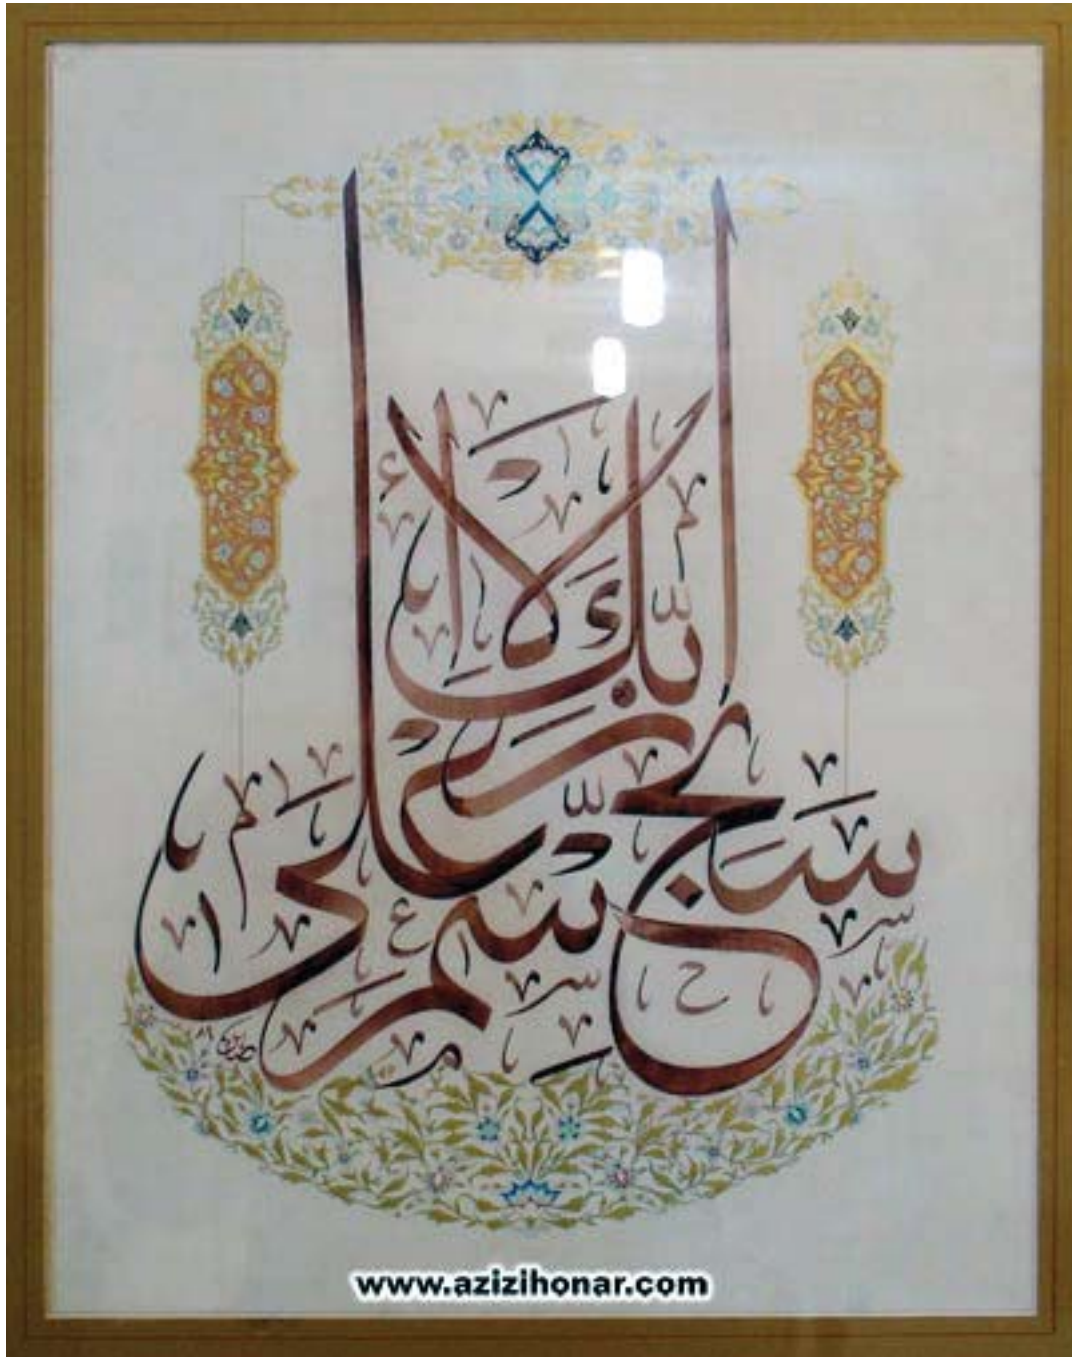 سَبِّحِ اسْمَ رَبِّكَ الْأَعْلَى
www.azizihonar.com